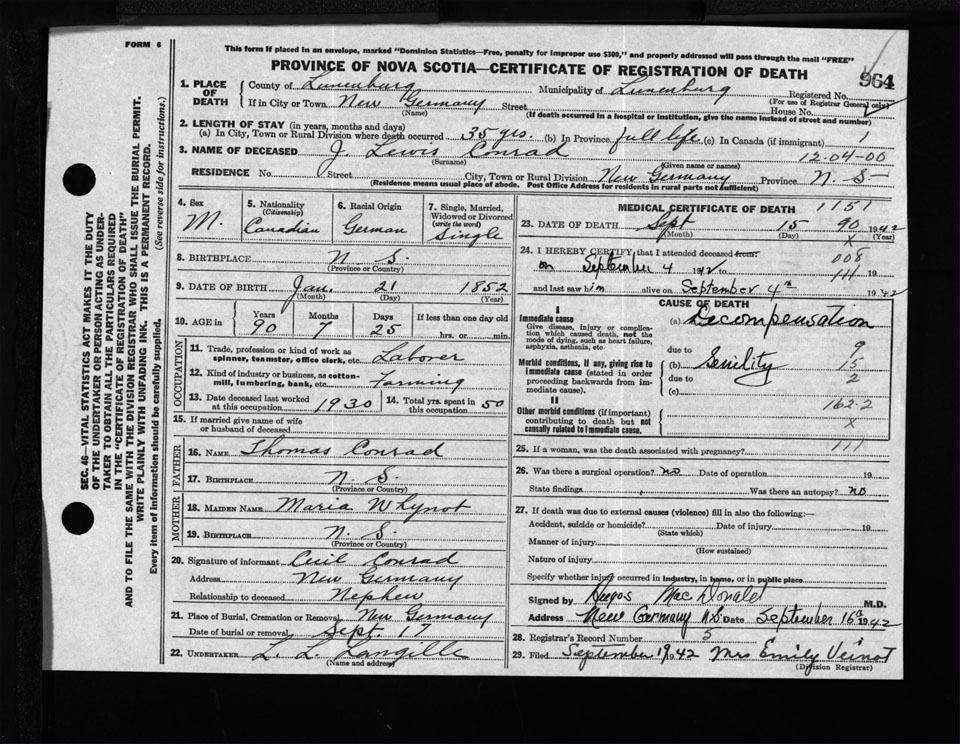 FORM 6
This form if placed in an envelope, marked "Dominion Statistics—Free, penalty for improper use $300," and properly addressed will pass through the mail "FREE"
PROVINCE OF NOVA SCOTIA—CERTIFICATE OF REGISTRATION OF DEATH
964
1. PLACE OF DEATH
County of Lunenburg Municipality of Lunenburg Registered No.
(For use of Registrar General only)
If in City or Town New Germany Street House No.
(Name) (If death occurred in a hospital or institution, give the name instead of street and number)
2. LENGTH OF STAY (in years, months and days)
(a) In City, Town or Rural Division where death occurred 35 yrs. (b) In Province full life (c) In Canada (if immigrant)
3. NAME OF DECEASED J. Lewis Conrad 12-04-00
(Surname) (Given name or names)
RESIDENCE No. Street City, Town or Rural Division New Germany Province N. S—
(Residence means usual place of abode. Post Office Address for residents in rural parts not sufficient)
4. Sex M.
5. Nationality (Citizenship) Canadian
6. Racial Origin German
7. Single, Married, Widowed or Divorced (write the word) Single
8. BIRTHPLACE N S.
(Province or Country)
9. DATE OF BIRTH Jan. 21 1852
(Month) (Day) (Year)
10. AGE in Years Months Days If less than one day old
90 7 25 hrs. or min.
OCCUPATION
11. Trade, profession or kind of work as spinner, teamster, office clerk, etc. Laborer
12. Kind of industry or business, as cotton-mill, lumbering, bank, etc. Farming
13. Date deceased last worked at this occupation 1930
14. Total yrs. spent in this occupation 50
15. If married give name of wife or husband of deceased
FATHER
16. NAME Thomas Conrad
17. BIRTHPLACE N. S.
(Province or Country)
MOTHER
18. MAIDEN NAME Maria Whynot
19. BIRTHPLACE N. S.
(Province or Country)
20. Signature of informant Cecil Conrad
Address New Germany
Relationship to deceased Nephew
21. Place of Burial, Cremation or Removal New Germany
Date of burial or removal Sept. 17
22. UNDERTAKER L. L. Langille
(Name and address)
MEDICAL CERTIFICATE OF DEATH 1151
23. DATE OF DEATH Sept 15 90 1942
(Month) (Day) X (Year)
24. I HEREBY CERTIFY that I attended deceased from: 008
on September 4 1942 to 111 19
and last saw him alive on September 4th 1942
CAUSE OF DEATH
I
Immediate cause
Give disease, injury or complication which caused death, not the mode of dying, such as heart failure, asphyxia, asthenia, etc.
(a) Decompensation
due to 9
Morbid conditions, if any, giving rise to immediate cause (stated in order proceeding backwards from immediate cause).
(b) Senility 15
due to 2
(c)
II
Other morbid conditions (if important) contributing to death but not causally related to immediate cause.
162-2
X
25. If a woman, was the death associated with pregnancy? 111
26. Was there a surgical operation? no Date of operation 19
State findings Was there an autopsy? no
27. If death was due to external causes (violence) fill in also the following:—
Accident, suicide or homicide? Date of injury 19
(State which)
Manner of injury
(How sustained)
Nature of injury
Specify whether injury occurred in industry, in home, or in public place
Signed by MacDonald M.D.
Address New Germany N.S. Date September 16th 1942
28. Registrar's Record Number 5
29. Filed September 19 1942 Mrs Emily Veinot
(Division Registrar)
SEC. 46—VITAL STATISTICS ACT MAKES IT THE DUTY
OF THE UNDERTAKER OR PERSON ACTING AS UNDERTAKER
TO OBTAIN ALL THE PARTICULARS REQUIRED
IN THE "CERTIFICATE OF REGISTRATION OF DEATH"
AND TO FILE THE SAME WITH THE DIVISION REGISTRAR WHO SHALL ISSUE THE BURIAL PERMIT.
WRITE PLAINLY WITH UNFADING INK. THIS IS A PERMANENT RECORD.
Every item of information should be carefully supplied. (See reverse side for instructions.)